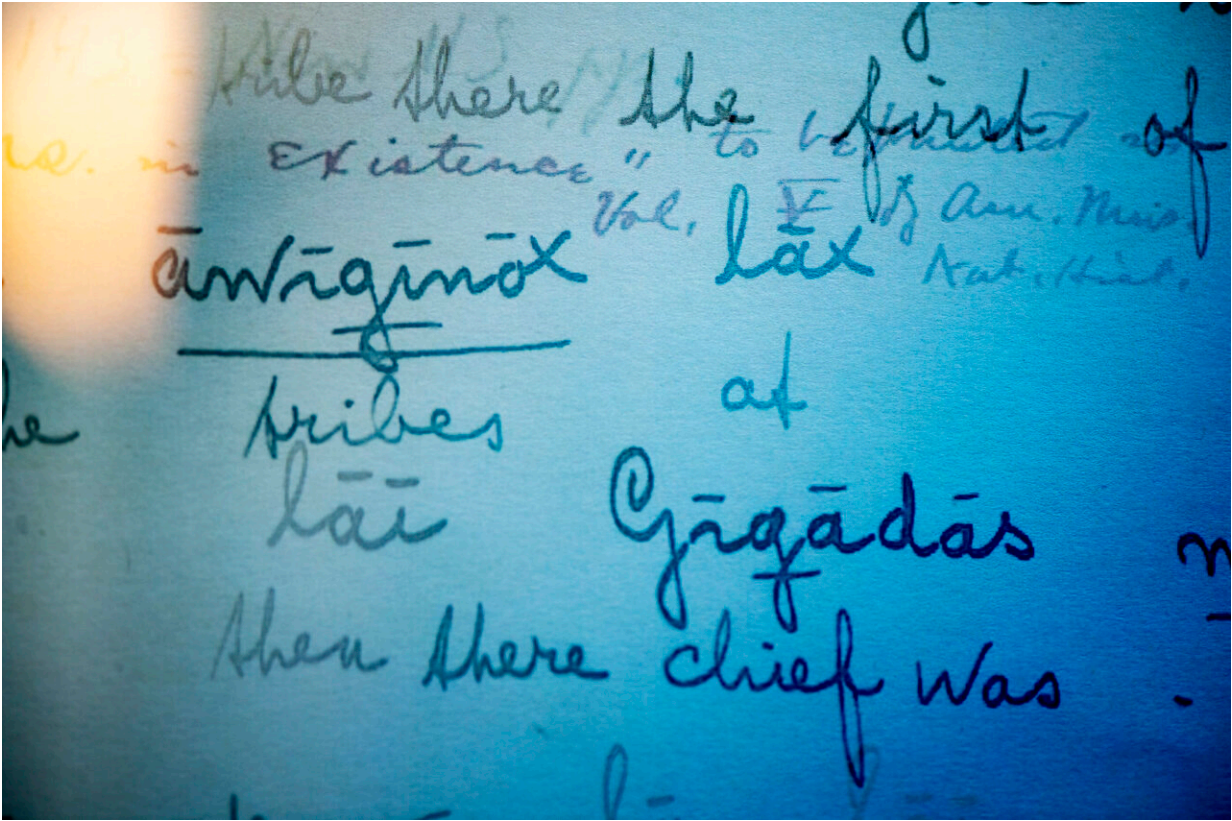 tribe there the first of
in Existence" to
Vol. V of Am. Mus.
Nat. Hist.
āwīg̱īnōx lāx
he tribes at
lāī Gīg̱ādās
then there chief was .